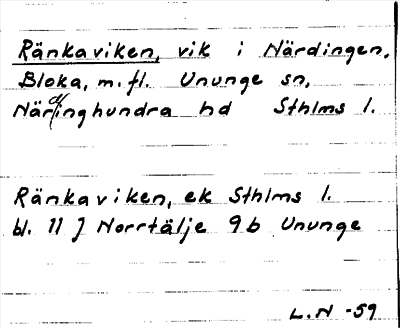 Ränkaviken, vik i Närdingen,
Bloka, m.fl. Ununge sn,
Närdinghundra hd Sthlms l.
Ränkaviken, ek Sthlms l.
bl. 11 J Norrtälje 9b Ununge
L.N -59